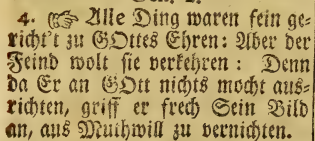 4. ☞ Alle Ding waren fein ge-
richt't zu GOttes Ehren: Aber der
Feind wolt sie verkehren: Denn
da Er an GOtt nichts mocht aus-
richten, griff er frech Sein Bild
an, aus Muthwill zu vernichten.